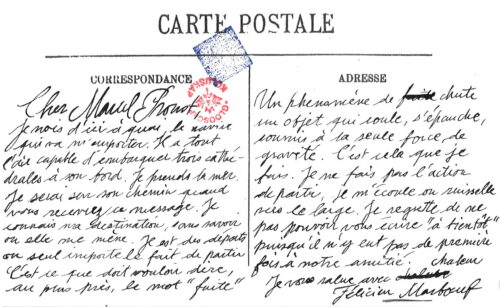 CARTE POSTALE
CORRESPONDANCE
ADRESSE
Cher Marcel Proust
je vois d'ici à quai, le navire
qui va m'emporter. Il a tout
l'air capable d'embarquer trois cathé-
drales à son bord. Je prends la mer.
Je serai sur son chemin quand
vous recevrez ce message. Je
connais ma destination, sans savoir
où elle me mène. Il est des départs
où seul importe le fait de partir.
C'est ce que doit vouloir dire,
au plus près, le mot "fuite"
Un phénomène de fuite chute
un objet qui coule, s'épanche,
soumis à la seule force de
gravité. C'est cela que je
fuis. Je ne fais pas l'action
de partir, je m'écoule ou ruisselle
vers le large. Je regrette de ne
pas pouvoir vous écrire "à bientôt"
puisqu'il n'y eut pas de première
fois à notre amitié.
chaleur
Je vous salue avec
Félicien Marboeuf